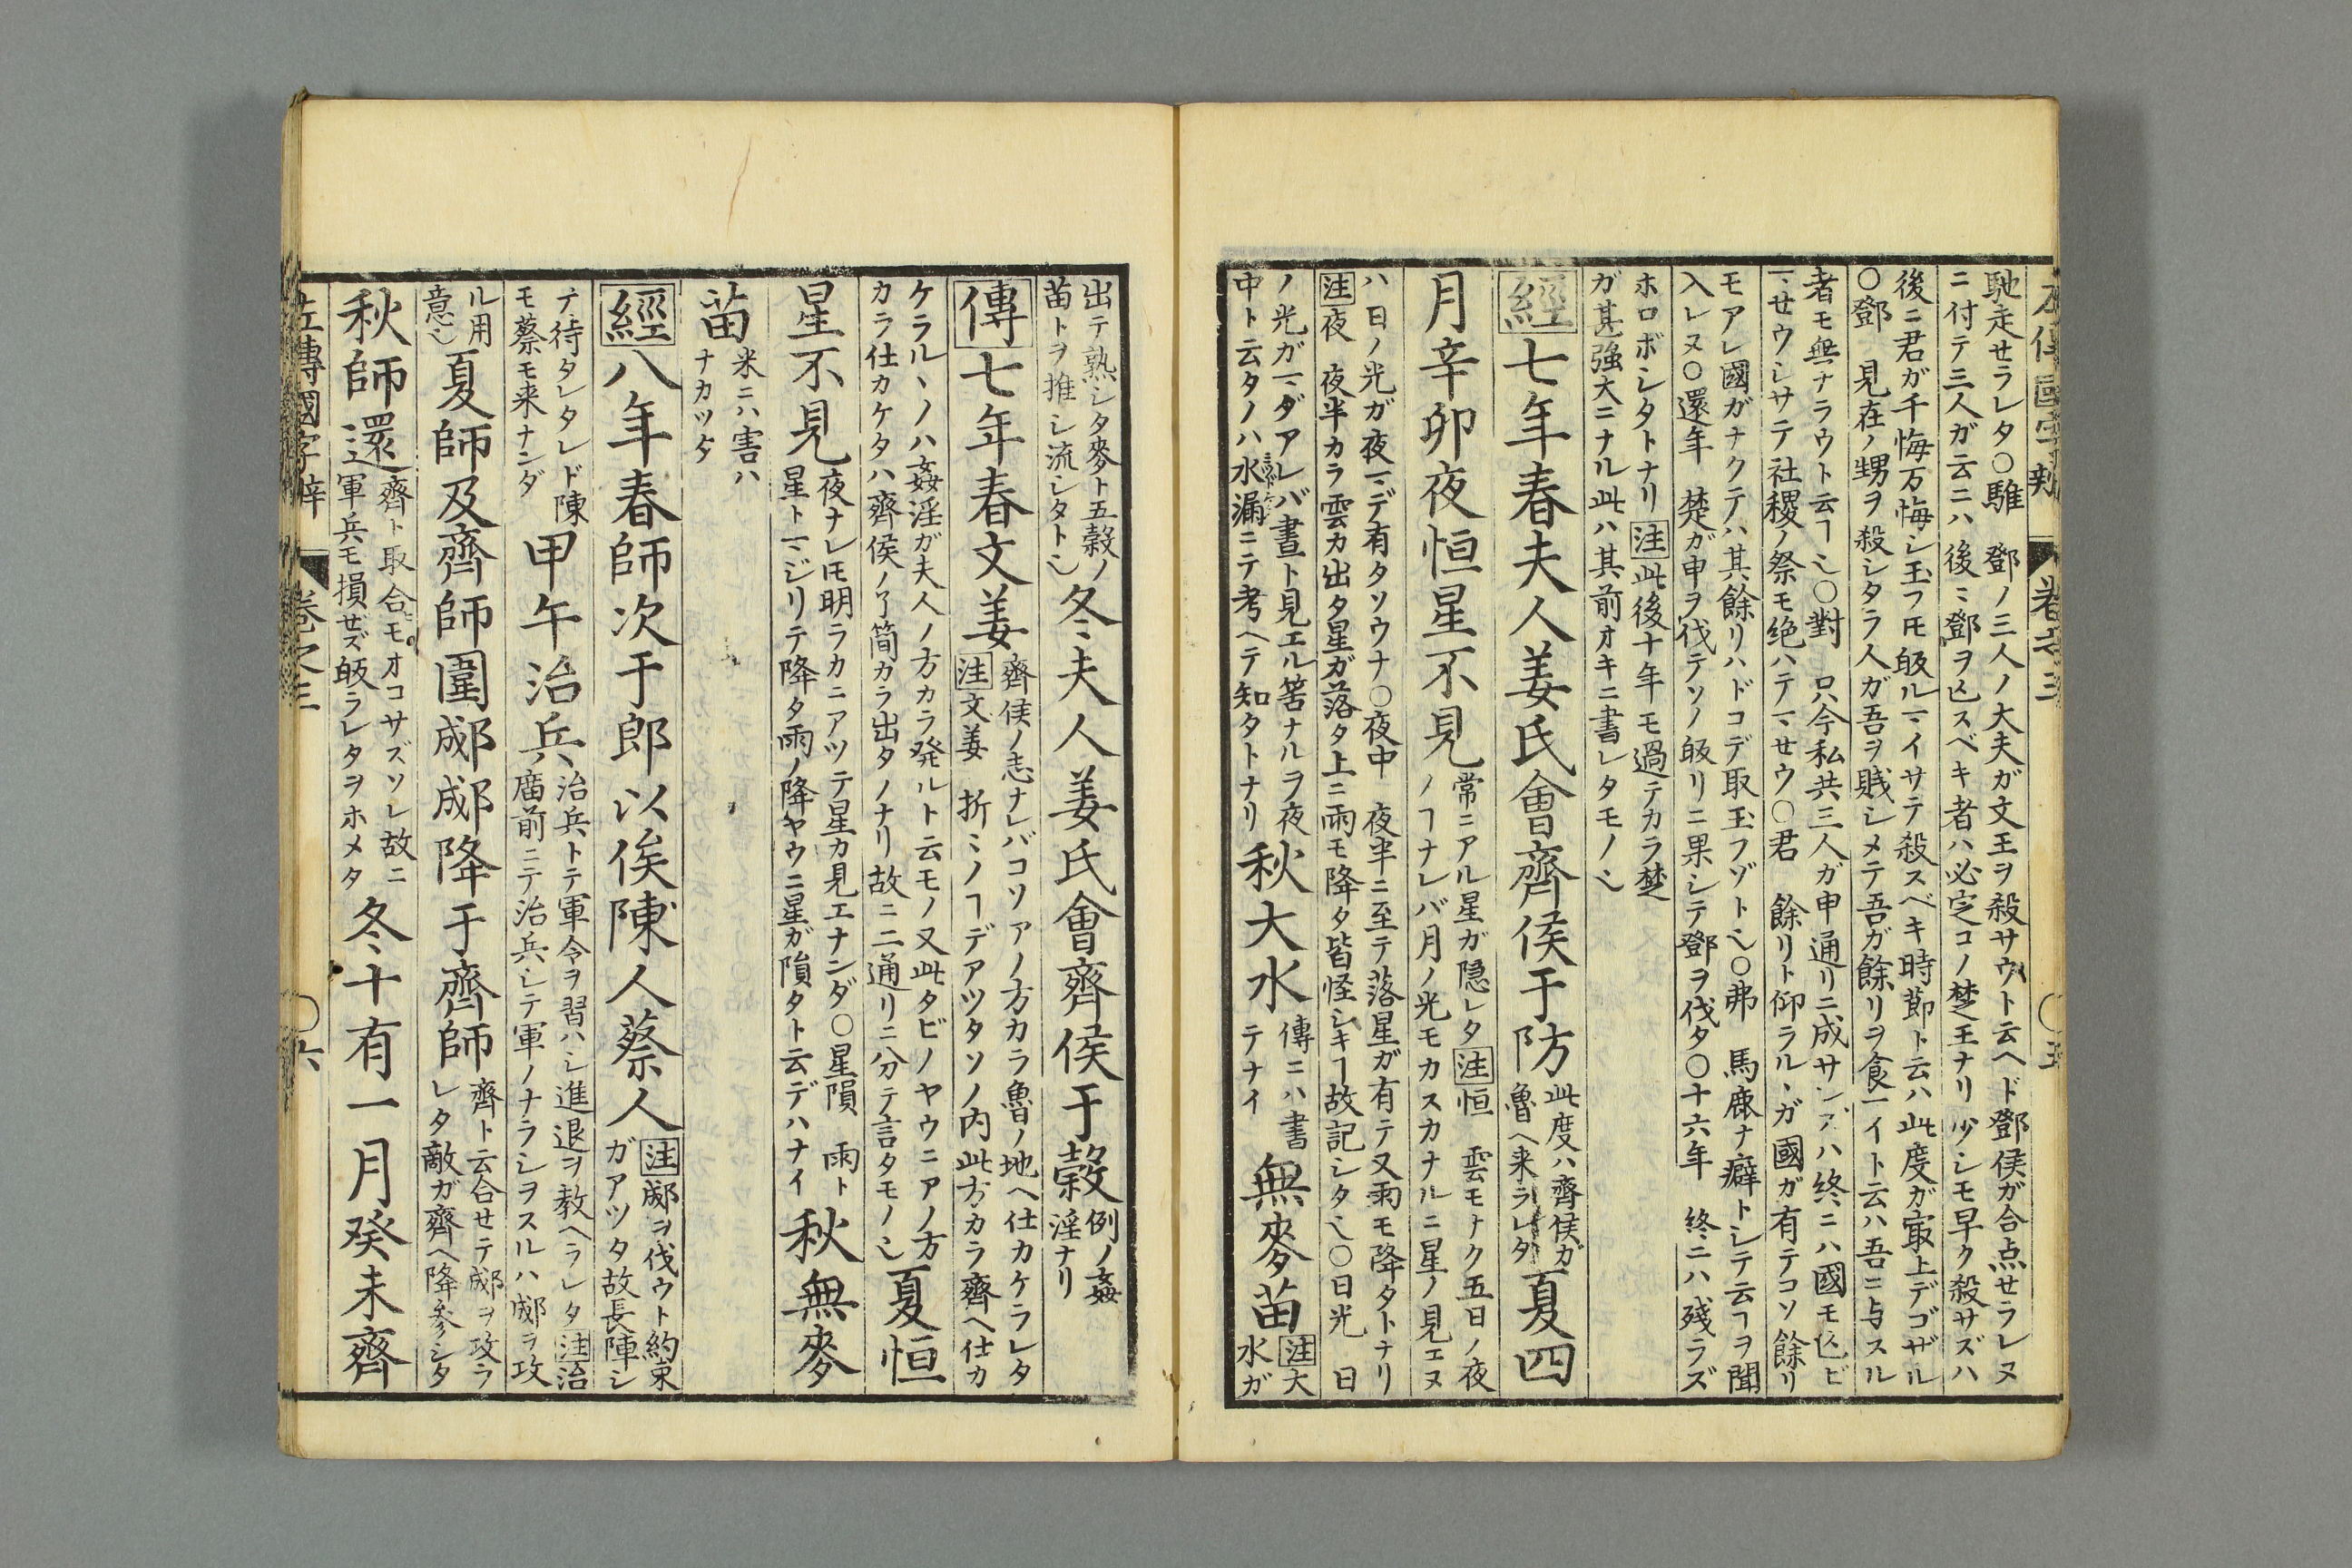 左傳國字辨 卷之三 ○五
馳走セラレタ○騅 鄧ノ三人ノ大夫ガ文王ヲ殺サウト云ヘド鄧侯ガ合点セラレヌ
ニ付テ三人ガ云ニハ後ニ鄧ヲ亡スベキ者ハ必定コノ楚王ナリ少シモ早ク殺サズハ
後ニ君ガ千悔万悔シ玉フ𪜈皈ルマイサテ殺スベキ時節ト云ハ此度ガ㝡上デゴザル
○鄧 見在ノ甥ヲ殺シタラ人ガ吾ヲ賎シメテ吾ガ餘リヲ食マイト云ハ吾ニ与スル
者モ無ナラウト云ヿ乀○對 只今私共三人ガ申通リニ成サレズハ終ニハ國モ亡ビ
マせウシサテ社稷ノ祭モ絶ハテマせウ○君 餘リト仰ラルヽガ國ガ有テコソ餘リ
モアレ國ガナクテハ其餘リハドコデ取玉フゾト乀○弗 馬鹿ナ癖トシテ云ヿヲ聞
入レヌ○還年 楚ガ申ヲ伐テソノ皈リニ果シテ鄧ヲ伐タ○十六年 終ニハ残ラズ
ホロボシタトナリ注此後十年モ過テカラ楚
ガ甚強大ニナル此ハ其前オキニ書レタモノ乀
經七年春夫人姜氏會齊侯于防
此度ハ齊侯ガ
魯ヘ来ラレタ
夏四
月辛卯夜恒星不見
常ニアル星ガ隠レタ注恒 雲モナク五日ノ夜
ノヿナレバ月ノ光モカスカナルニ星ノ見エヌ
ハ日ノ光ガ夜マデ有タソウナ○夜中 夜半ニ至テ落星ガ有テ又雨モ降タトナリ
注夜 夜半カラ雲カ出タ星ガ落タ上ニ雨モ降タ皆怪シキヿ故記シタ乀○日光 日
ノ光ガマダアレバ晝ト見エル筈ナルヲ夜
中ト云タノハ水漏ニテ考ヘテ知タトナリ
秋大水
傳ニハ書
テナイ
無麥苗
注大
水ガ
出テ熟シタ麥ト五穀ノ
苗トヲ推シ流シタト乀
冬夫人姜氏會齊侯于穀
例ノ姦
淫ナリ
傳七年春文姜
齊侯ノ志ナレバコソアノ方カラ魯ノ地ヘ仕カケラレタ
注文姜 折ミノヿデアツタソノ内此方カラ齊ヘ仕カ
ケラルヽノハ姦淫ガ夫人ノ方カラ発ルト云モノ又此タビノヤウニアノ方
カラ仕カケタハ齊侯ノ了簡カラ出タノナリ故ニ二通リニ分テ言タモノ乀
夏恒
星不見
夜ナレ𪜈明ラカニアツテ星カ見エナンダ○星隕 雨ト
星トマジリテ降タ雨ノ降ヤウニ星ガ隕タト云デハナイ
秋無麥
苗
米ニハ害ハ
ナカツタ
經八年春師次于郎以俟陳人蔡人
注郕ヲ伐ウト約束
ガアツタ故長陣シ
テ待タレタレド陳
モ蔡モ来ナンダ
甲午治兵
治兵トテ軍令ヲ習ハシ進退ヲ教ヘラレタ注治
庿前ニテ治兵シテ軍ノナラシヲスルハ郕ヲ攻
ル用
意乀
夏師及齊師圍郕郕降于齊師
齊ト云合せテ郕ヲ攻ラ
レタ敵ガ齊ヘ降参シタ
秋師還
齊ト取合モオコサズソレ故ニ
軍兵モ損ぜズ皈ラレタヲホメタ
冬十有一月癸未齊
左傳國字辨 卷之三 ○六